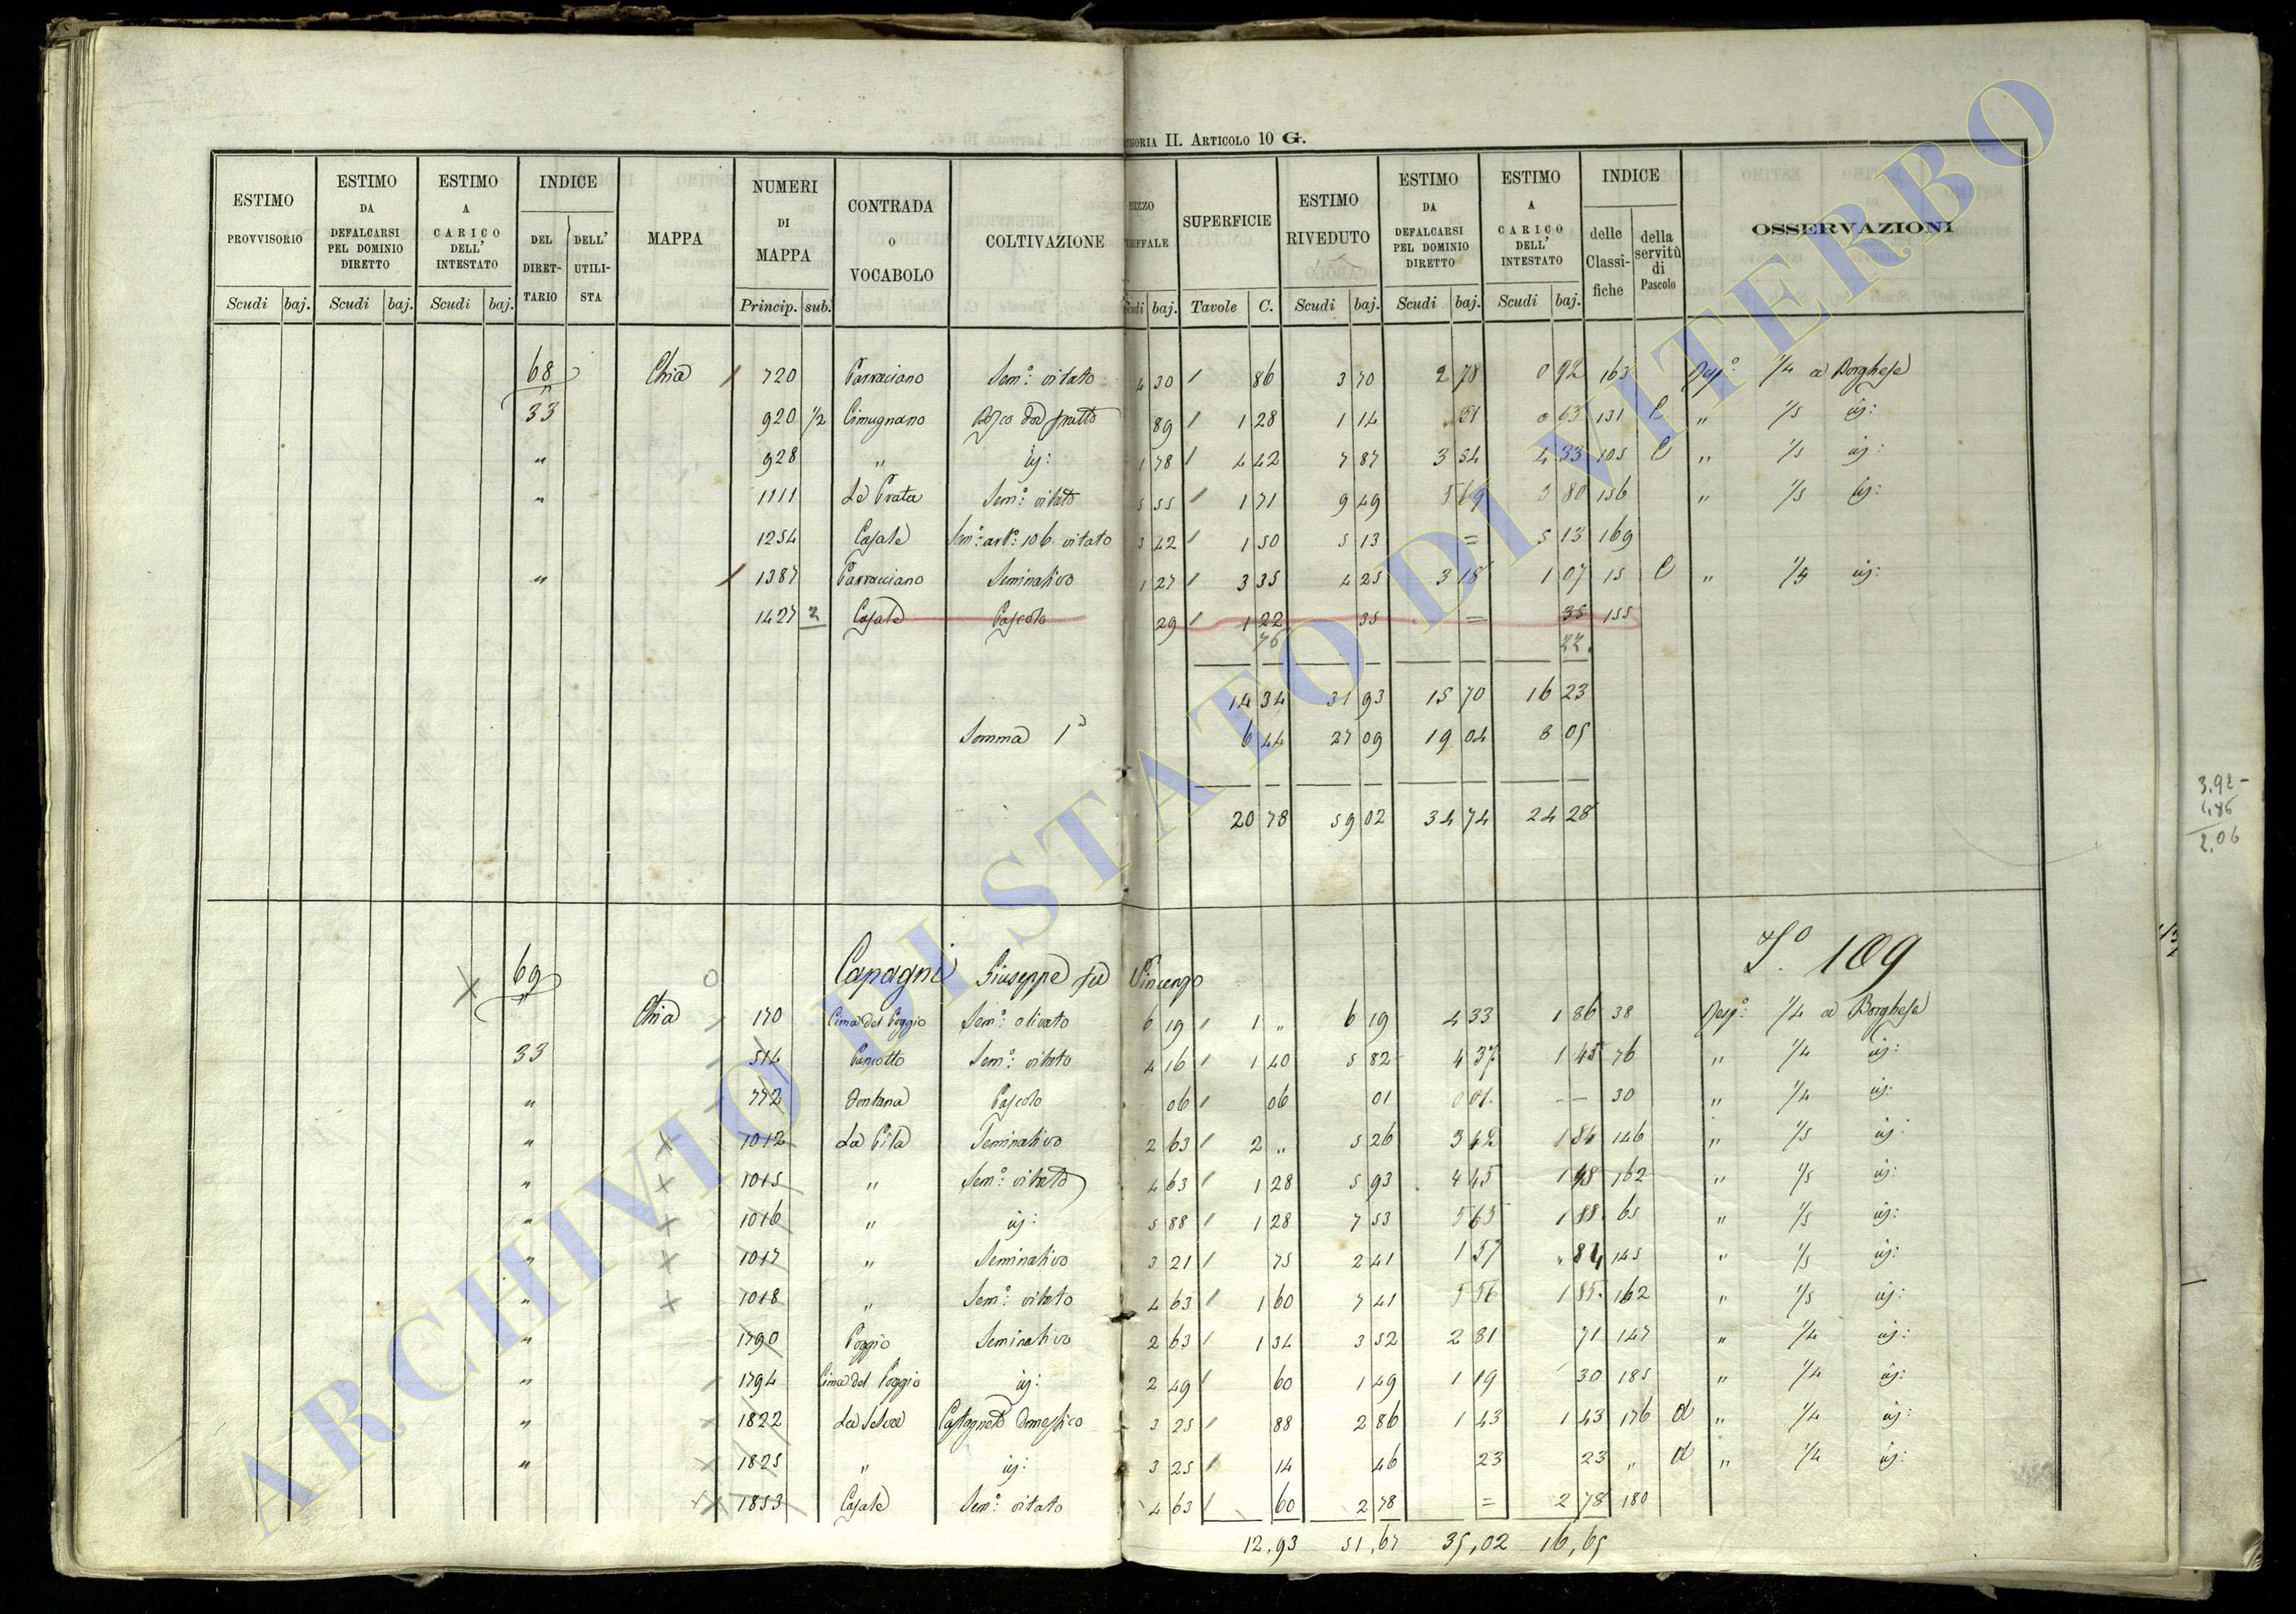 TEGORIA II. ARTICOLO 10 G.
ESTIMO PROVVISORIO Scudi baj. ESTIMO DA DEFALCARSI PEL DOMINIO DIRETTO Scudi baj. ESTIMO A CARICO DELL' INTESTATO Scudi baj. INDICE DEL DIRET-TARIO DELL' UTILI-STA MAPPA NUMERI DI MAPPA Princip. sub. CONTRADA O VOCABOLO COLTIVAZIONE EZZO RIFFALE Scudi baj. SUPERFICIE Tavole C. ESTIMO RIVEDUTO Scudi baj. ESTIMO DA DEFALCARSI PEL DOMINIO DIRETTO Scudi baj. ESTIMO A CARICO DELL' INTESTATO Scudi baj. INDICE delle Classi-fiche della servitù di Pascolo OSSERVAZIONI
68 Chia 720 Parraciano Sem:° vitato 4 30 86 3 70 2 78 0 92 163 Risp:° 1/4 a Borghese
33 920 1/2 Cimugnano Bosco dod frutto 89 1 28 1 14 51 0 63 131 C " 1/5 id:
" 928 " id: 1 78 4 42 7 87 3 54 4 33 105 C " 1/5 id:
" 1111 La Prata Sem:° vitato 5 55 1 71 9 49 5 69 3 80 156 " 1/5 id:
1254 Casale Sem:° art:° 106 vitato 3 42 1 50 5 13 = 5 13 169
" 1387 Parracciano Seminativo 1 27 3 35 4 25 3 18 1 07 15 C " 1/4 id:
1427 2 Casale Pascolo 29 1 22 35 = 35 155
76 22.
14 34 31 93 15 70 16 23
Somma 1ª 6 44 27 09 19 04 8 05
20 78 59 02 34 74 24 28
3.92-
1.86
2.06
69 Capagni Giuseppe fu Vincenzo 109
Chia 170 Cima del Poggio Sem:° olivato 6 19 1 " 6 19 4 33 1 86 38 Risp:° 1/4 a Borghese
33 514 Pancotto Sem:° vitato 4 16 1 40 5 82 4 37 1 45 76 " 1/4 id:
" 772 Fontana Pascolo 06 06 01 0 01 — — 30 " 1/4 id:
" 1012 La Pila Seminativo 2 63 2 " 5 26 3 42 1 84 146 " 1/5 id:
" 1015 " Sem:° vitato 4 63 1 28 5 93 4 45 1 48 162 " 1/5 id:
" 1016 " id: 5 88 1 28 7 53 5 65 1 88 65 " 1/5 id:
" 1017 " Seminativo 3 21 75 2 41 1 57 " 84 145 " 1/5 id:
" 1018 " Sem:° vitato 4 63 1 60 7 41 5 56 1 85 162 " 1/5 id:
" 1790 Poggio Seminativo 2 63 1 34 3 52 2 81 71 147 " 1/4 id:
" 1794 Cima del Poggio id: 2 49 60 1 49 1 19 30 185 " 1/4 id:
" 1822 La Selva Castagneto Domestico 3 25 88 2 86 1 43 1 43 176 d " 1/4 id:
" 1825 " id: 3 25 14 46 23 23 " d " 1/4 id:
1853 Casale Sem:° vitato 4 63 60 2 78 = 2 78 180
12,93 51,67 35,02 16,65
ARCHIVIO DI STATO DI VITERBO